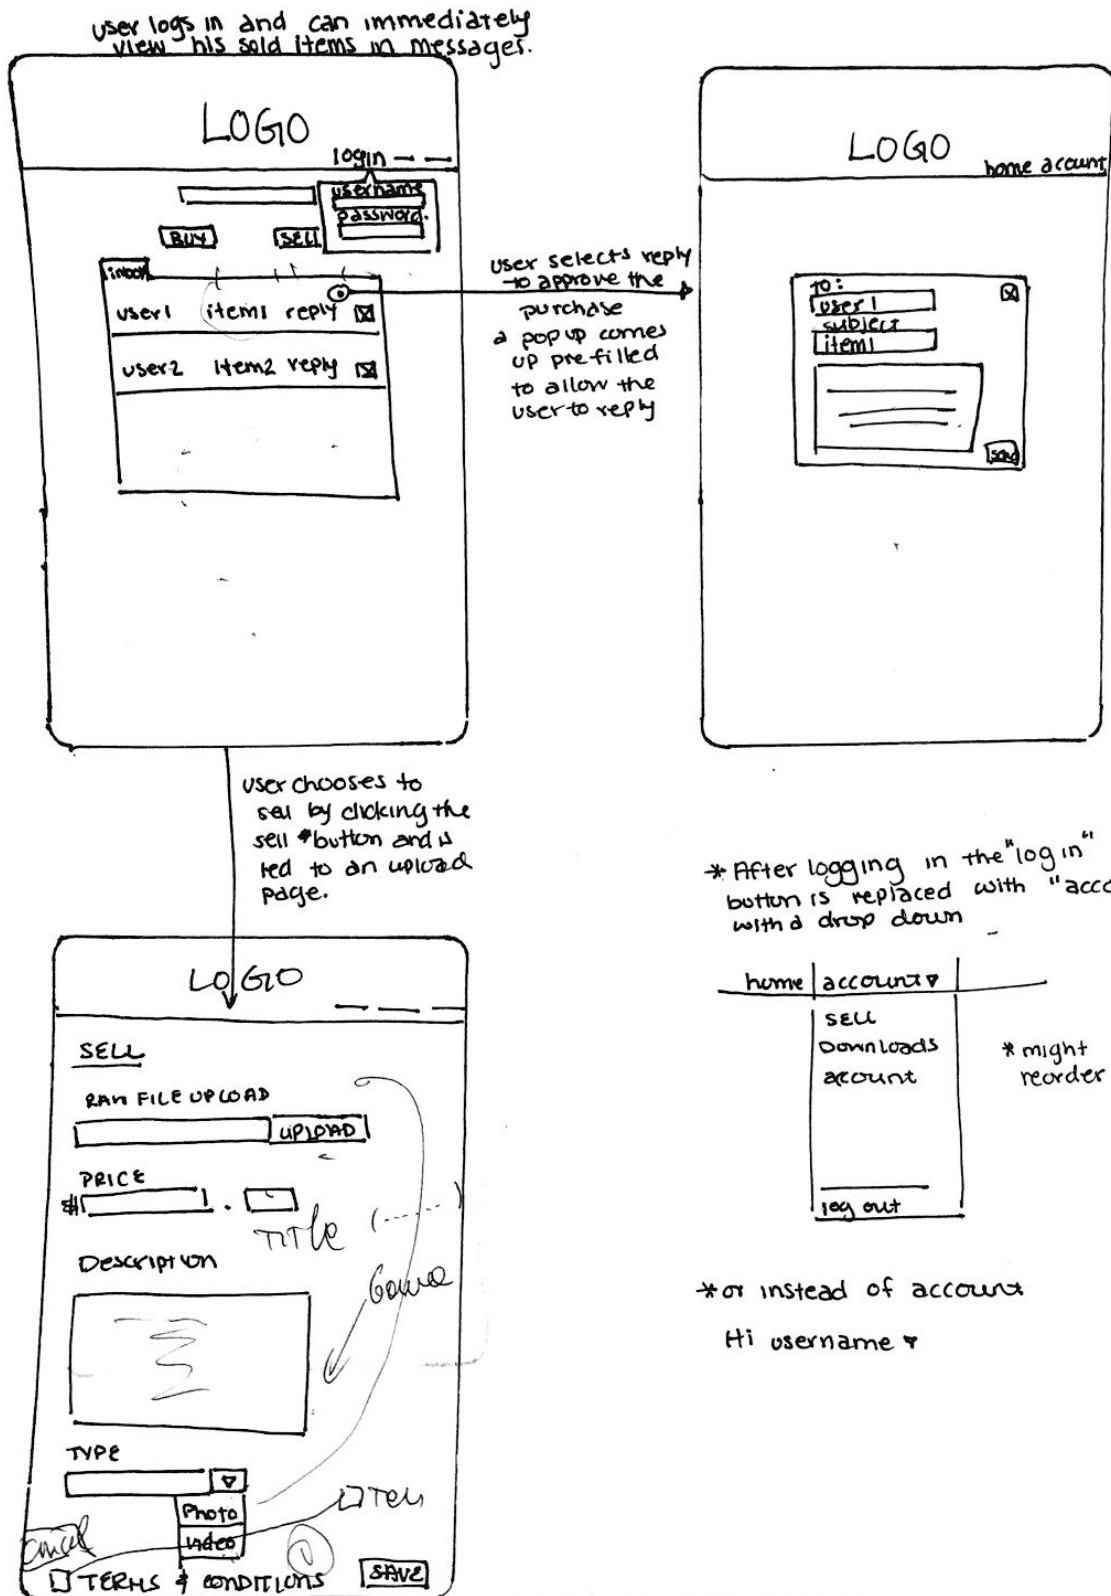 user logs in and can immediately
view his sold items in messages.
LOGO
login
username
password.
BUY
SELL
inbox
user1 item1 reply
user2 item2 reply
user selects reply
to approve the
purchase
a pop up comes
up pre-filled
to allow the
user to reply
LOGO
home acount
TO:
user 1
subject
item1
send
user chooses to
sell by clicking the
sell button and is
led to an upload
page.
LOGO
SELL
RAW FILE UPLOAD
UPLOAD
PRICE
$ .
TITLE
Description
TYPE
Photo
video
cancel
TERMS & CONDITIONS
SAVE
*After logging in the "log in"
button is replaced with "acco
with a drop down
home account
SELL
Downloads
account
log out
*might
reorder
*or instead of account
Hi username